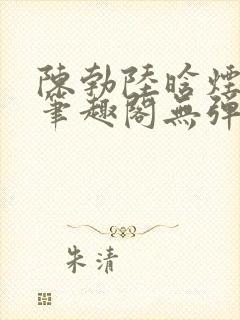 陳勃陸晗煙
筆趣閣無彈
朱清